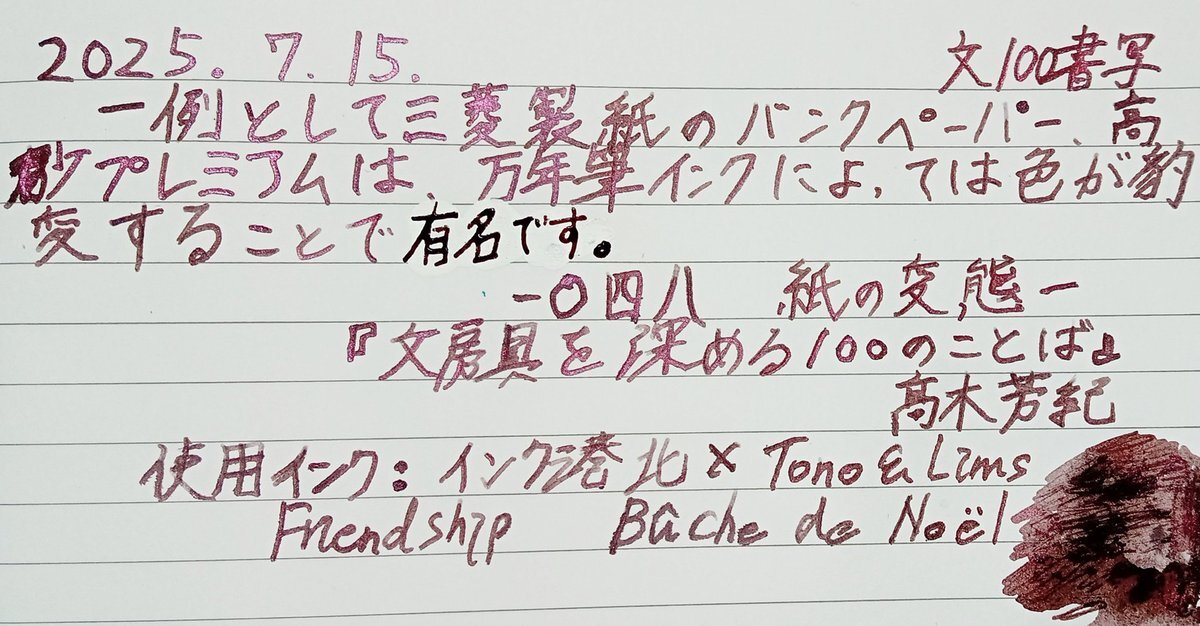 2025.7.15. 文100書写
一例として三菱製紙のバンクペーパー、高
砂プレミアムは、万年筆インクによっては色が豹
変することで有名です。
−〇四八 紙の変態−
『文房具を深める100のことば』
高木芳紀
使用インク：インク港北×Tono & Lims
Friendship Bûche de Noël